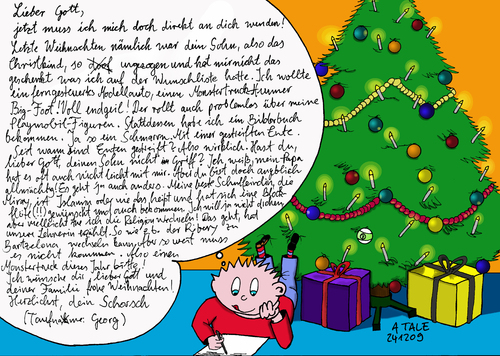 Lieber Gott,
jetzt muss ich mich doch direkt an dich wenden!
Letzte Weihnachten nämlich war dein Sohn, also das
Christkind, so ungezogen und hat mir nicht das
geschenkt was ich auf der Wunschliste hatte. Ich wollte
ein ferngesteuertes Modellauto, einen Monstertruck Hummer
Big-Foot. Voll endgeil! Der rollt auch problemlos über meine
Playmobil-Figuren. Stattdessen habe ich ein Bilderbuch
bekommen. Ja so ein Schmarrn. Mit einer gestreiften Ente.
Seit wann sind Enten gestreift? Also wirklich. Hast du,
lieber Gott, deinen Sohn nicht im Griff? Ich weiß, mein Papa
hat es oft auch nicht leicht mit mir. Aber du bist doch angeblich
allmächtig! Es geht ja auch anders. Meine beste Schulfreundin, die
Miray, ist Islamin oder wie das heißt und hat sich eine Block-
flöte (!!) gewünscht und auch bekommen. Ich will ja nicht drohen
aber vielleicht muss ich die Religion wechseln! Das geht, hat
unsere Lehrerin erzählt. So wie z.b. der Ribery zu
Bartzelona wechseln kann, aber so weit muss
es nicht kommen. Also einen
Monstertruck dieses Jahr bitte.
Ich wünsche dir lieber Gott und
deiner Familie frohe Weihnachten!
Herzlichst, dein Schorsch
(Taufname: Georg)
A TALE
241209